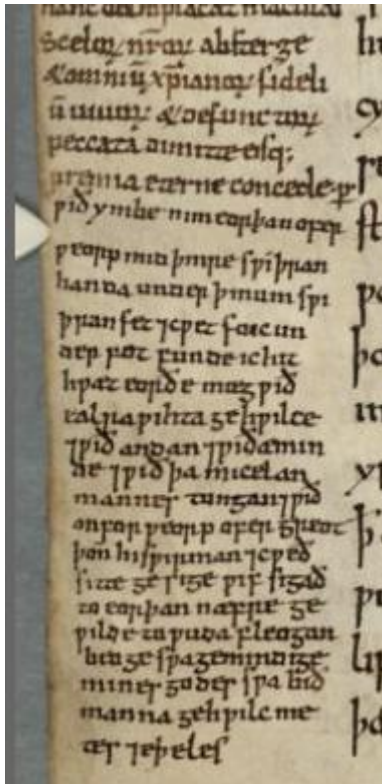 Sceloꝝ nr̄oꝝ absterge
& omniū xp̄ianoꝝ fideli
ū uiuoꝝ & defunctoꝝ
peccata dimitte eisq;
premia eterne concede. ꝑ
ƿið ymbe nim eorþan ofer
ƿeorp mid þinre sƿiþran
handa under þinum sƿi
þran fet ⁊cƿet fo ic un
der fot funde ic hit
hƿæt eorðe mæg ƿið
ealra ƿihta gehƿilce
⁊ƿið andan ⁊ƿið æmin
de ⁊ƿið þa micelan
mannes tungan ⁊ƿið
on forƿeorp ofer greot
þoñ hi sƿirman ⁊cƿeð
sitte ge sige ƿif sigað
to eorþan næfre ge
ƿilde to ƿuda fleogan
beo ge sƿa gemindige
mines godes sƿa bið
manna gehƿilc me
tes ⁊eþeles